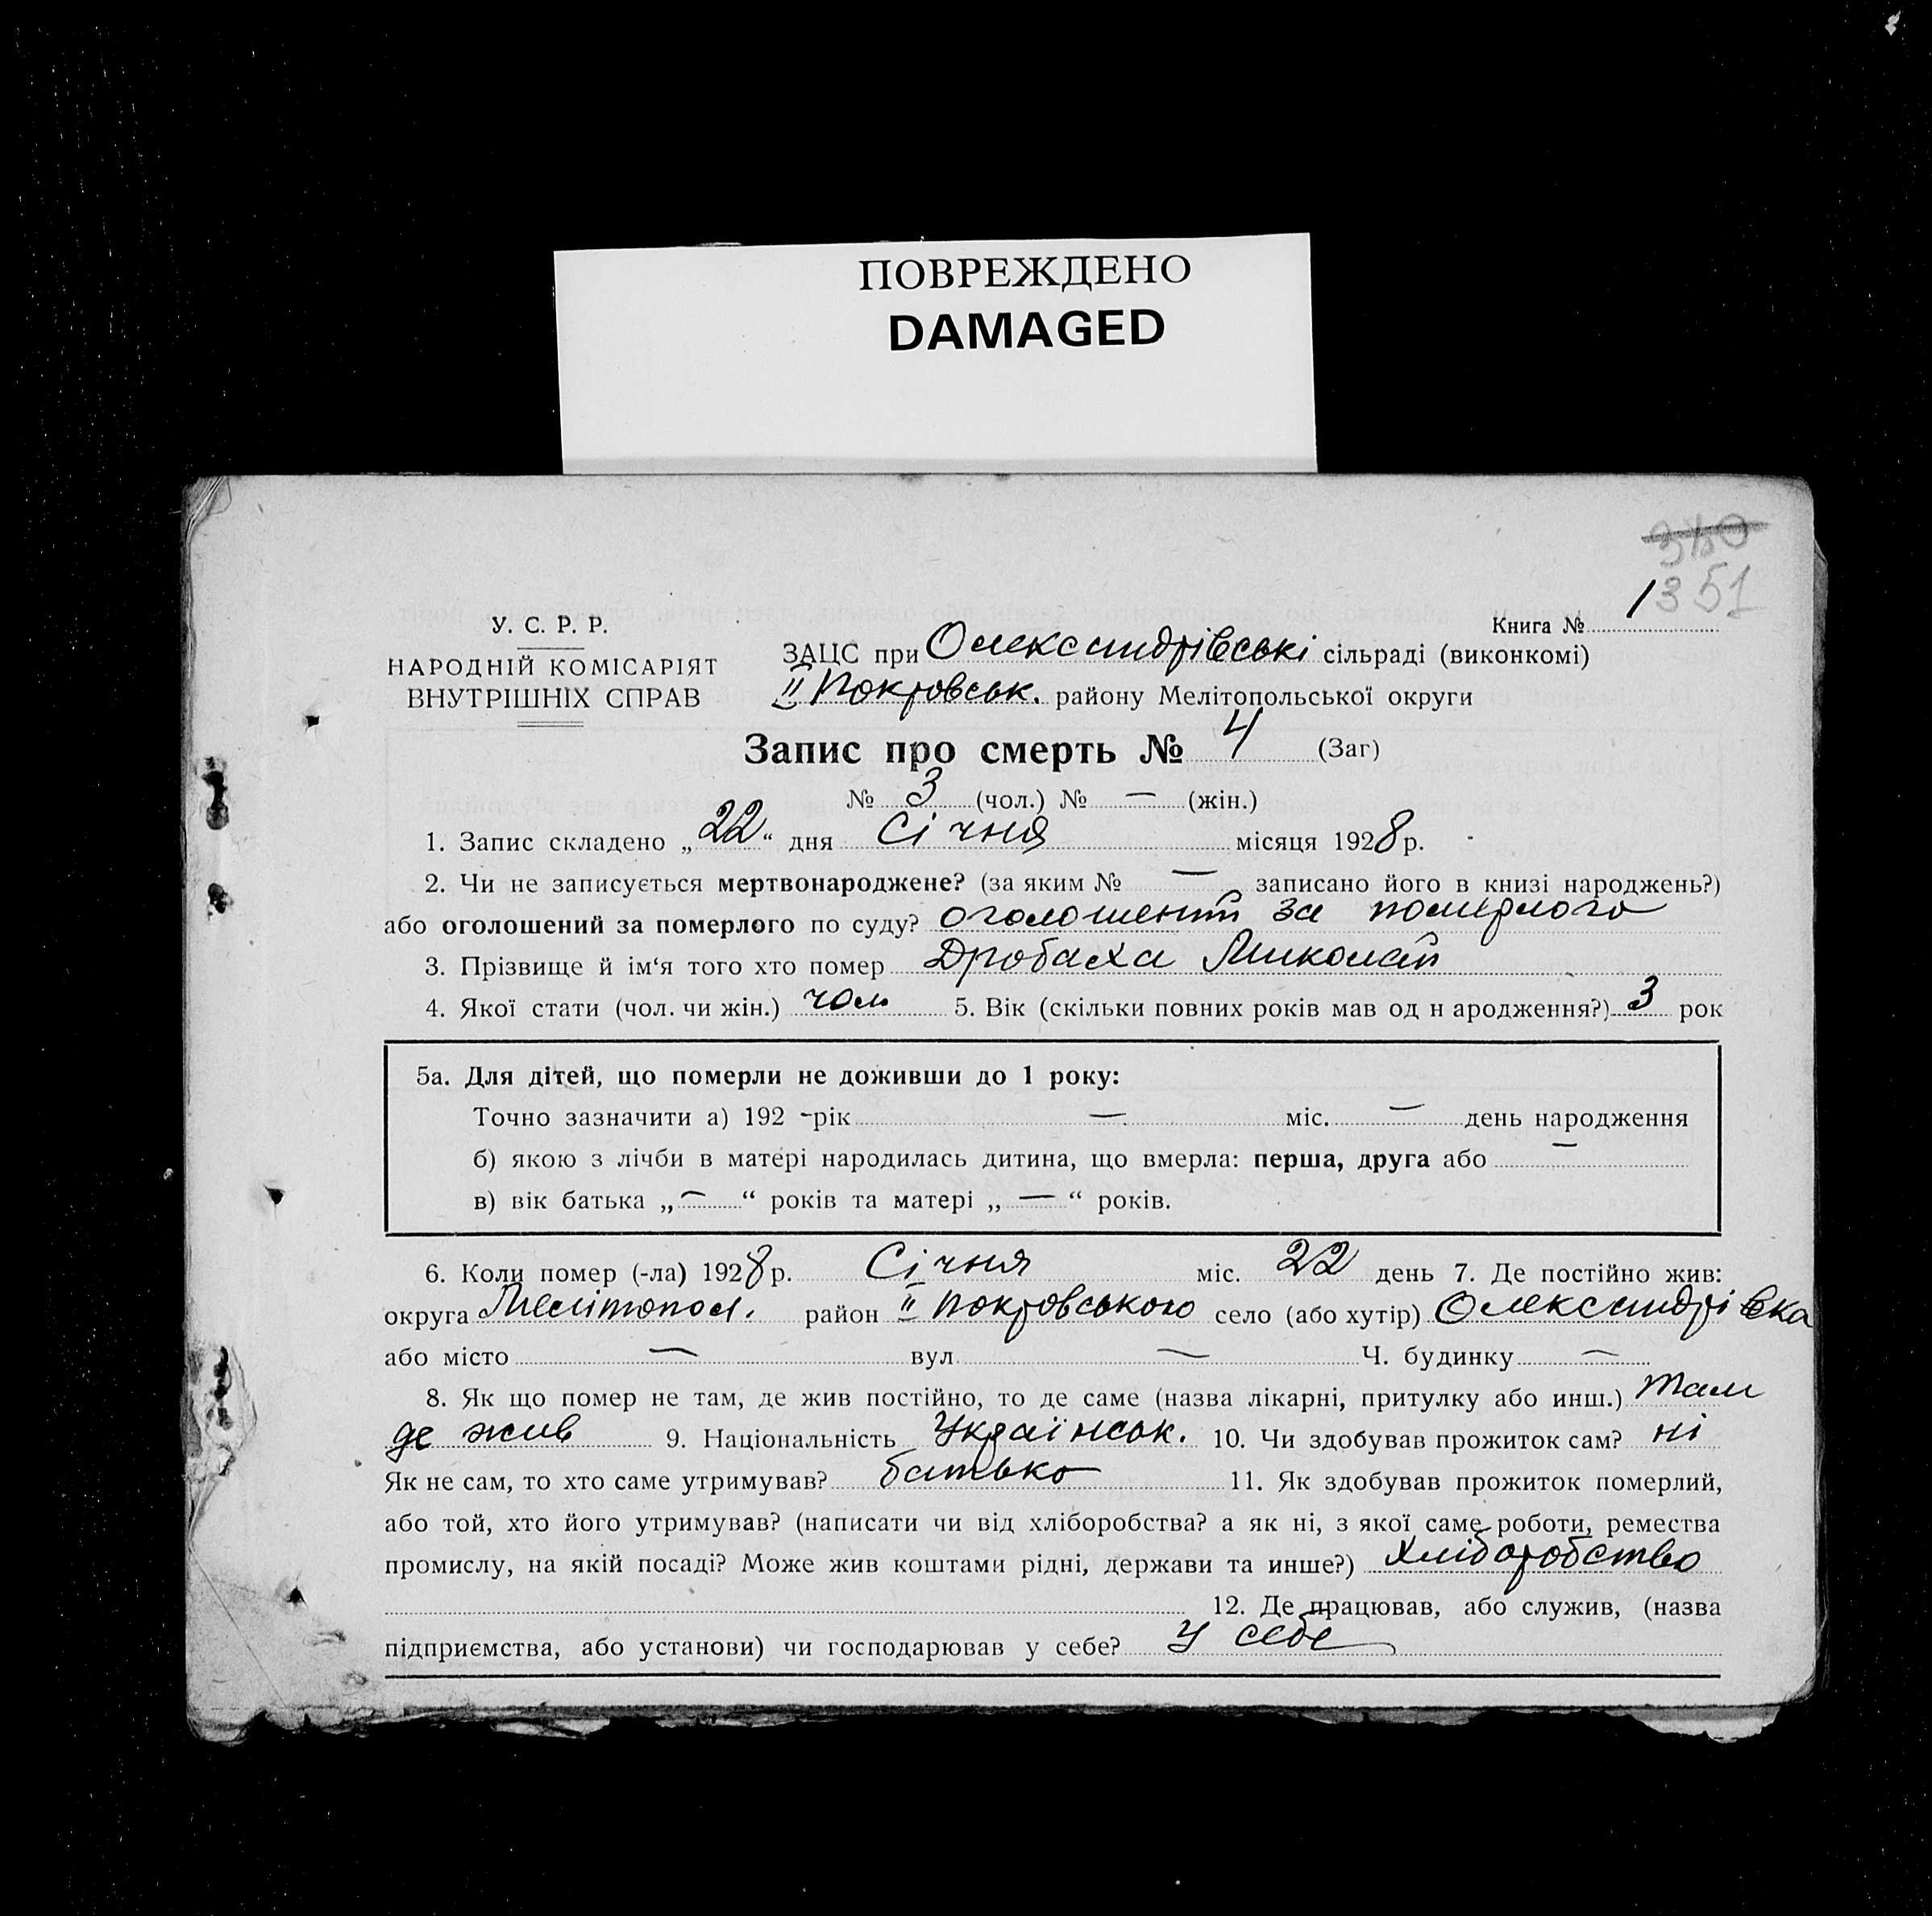 ПОВРЕЖДЕНО
DAMAGED
351
У. С. Р. Р.
НАРОДНІЙ КОМІСАРІЯТ
ВНУТРІШНІХ СПРАВ
Книга № 1
ЗАЦС при Олександрівські сільраді (виконкомі)
II Покровськ. району Мелітопольської округи
Запис про смерть № 4 (Заг)
№ 3 (чол.) № — (жін.)
1. Запис складено „22“ дня Січня місяця 1928 р.
2. Чи не записується мертвонароджене? (за яким № — записано його в книзі народжень?)
або оголошений за померлого по суду? оголошений за померлого
3. Прізвище й ім‘я того хто помер Дробаха Миколай
4. Якої стати (чол. чи жін.) чол 5. Вік (скільки повних років мав од н ародження?) 3 рок
5а. Для дітей, що померли не доживши до 1 року:
Точно зазначити а) 192 -рік — міс. — день народження
б) якою з лічби в матері народилась дитина, що вмерла: перша, друга або —
в) вік батька „—“ років та матері „—“ років.
6. Коли помер (-ла) 1928 р. Січня міс. 22 день 7. Де постійно жив:
округа Мелітопол. район II Покровського село (або хутір) Олександрівка
або місто — вул — Ч. будинку —
8. Як що помер не там, де жив постійно, то де саме (назва лікарні, притулку або инш.) там
де жив 9. Національність Українськ. 10. Чи здобував прожиток сам? ні
Як не сам, то хто саме утримував? батько 11. Як здобував прожиток померлий,
або той, хто його утримував? (написати чи від хліборобства? а як ні, з якої саме роботи, ремества
промислу, на якій посаді? Може жив коштами рідні, держави та инше?) Хліборобство
12. Де працював, або служив, (назва
підприємства, або установи) чи господарював у себе? у себе